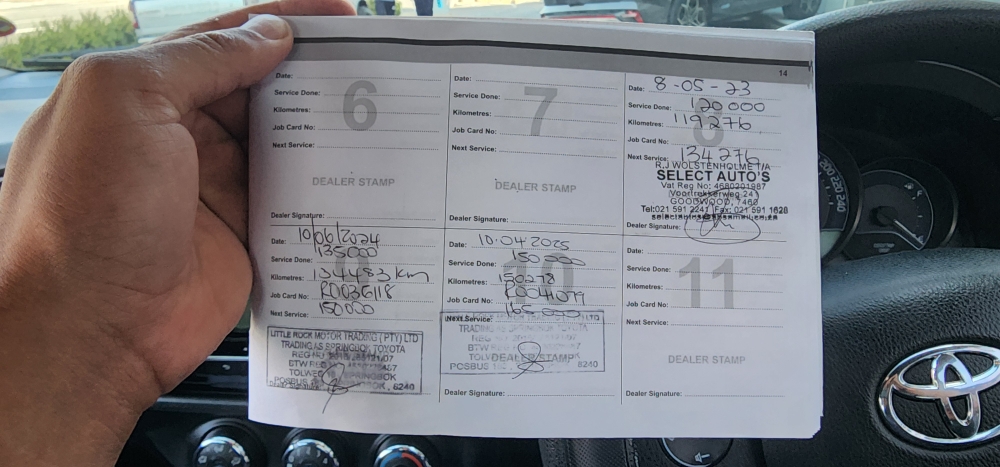 14
Date:
Service Done:
Kilometres:
Job Card No:
Next Service:
6
DEALER STAMP
Dealer Signature:
Date:
Service Done:
Kilometres:
Job Card No:
Next Service:
7
DEALER STAMP
Dealer Signature:
Date: 8-05-23
Service Done: 120 000
Kilometres: 119276
Job Card No:
8
Next Service: 134 276
R.J WOLSTENHOLME T/A
SELECT AUTO'S
Vat Reg No: 4680201987
Voortrekkerweg 241
GOODWOOD, 7460
Tel:021 591 2241 Fax: 021 591 1628
Dealer Signature:
Date: 10/06/2024
Service Done: 135000
Kilometres: 134483 km
Job Card No: R0036118
Next Service: 150000
9
LITTLE ROCK MOTOR TRADING (PTY) LTD
TRADING AS SPRINGBOK TOYOTA
Date: 10.04.2025
Service Done: 150 000
Kilometres: 150278
Job Card No: R0041079
Next Service: 165 000
10
DEALER STAMP
8240
Dealer Signature:
Date:
Service Done:
Kilometres:
Job Card No:
Next Service:
11
DEALER STAMP
Dealer Signature:
200 220 240